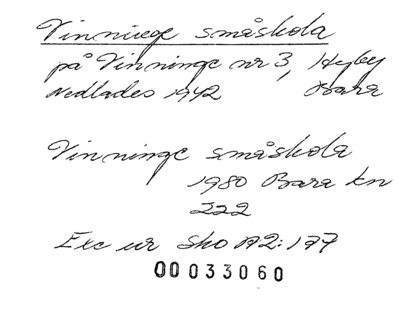 Vinninge småskola
på Vinninge nr 3, Hyby
nedlades 1942 Bara
Vinninge småskola
1980 Bara kn
222
Exc ur Sko A2:177
00033060